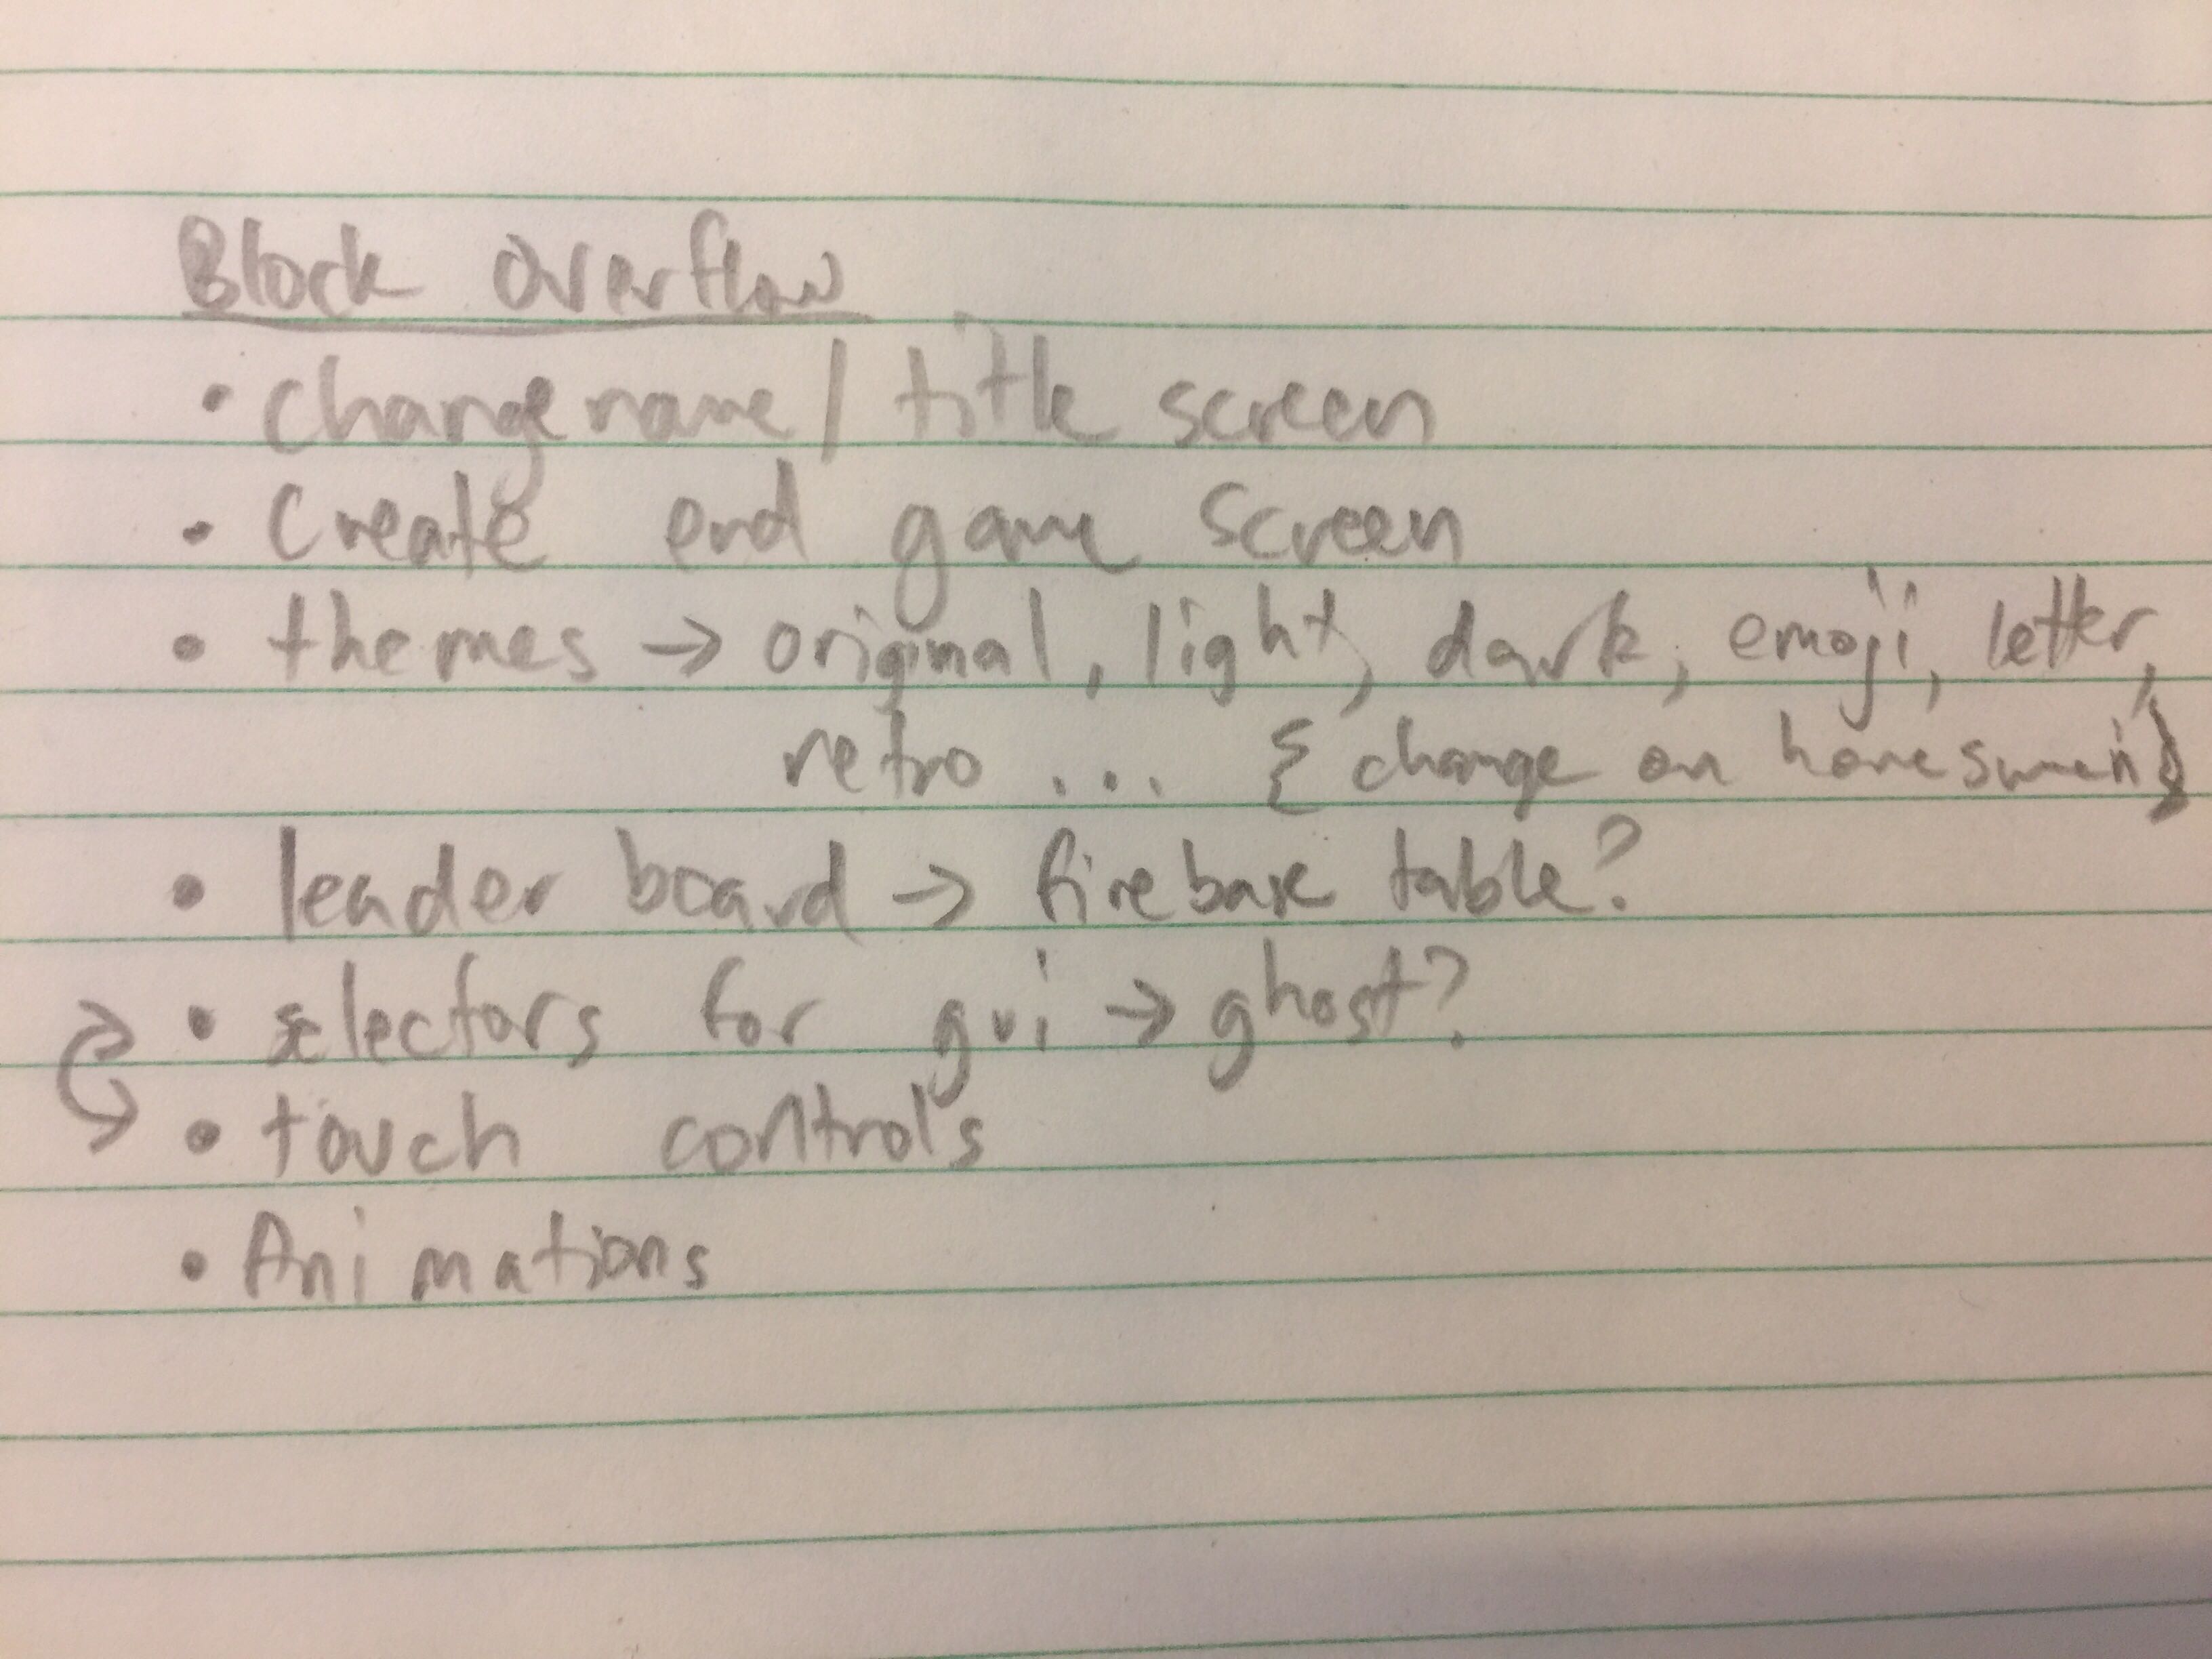 Block Overflow
• change name / title screen
• Create end game screen
• themes → original, light, dark, emoji, letter,
retro ... { change on homescreen }
• leader board → firebase table?
• selectors for gui → ghost?
• touch controls
• Animations